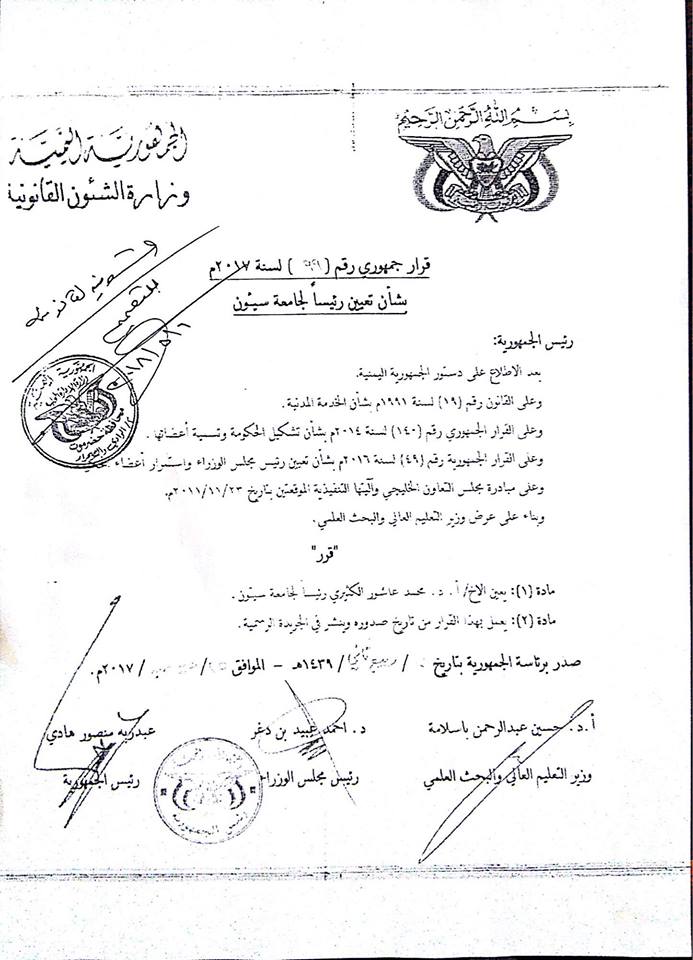 بسم الله الرحمن الرحيم
الجمهورية اليمنية
وزارة الشئون القانونية
قرار جمهوري رقم ( ) لسنة ٢٠١٧م
بشأن تعيين رئيساً لجامعة سيئون
رئيس الجمهورية:
بعد الاطلاع على دستور الجمهورية اليمنية.
وعلى القانون رقم (١٩) لسنة ١٩٩١م بشأن الخدمة المدنية.
وعلى القرار الجمهوري رقم (١٤٠) لسنة ٢٠١٤م بشأن تشكيل الحكومة وتسمية أعضائها.
وعلى القرار الجمهورية رقم (٤٩) لسنة ٢٠١٦م بشأن تعيين رئيس مجلس الوزراء واستمرار أعضاء
وعلى مبادرة مجلس التعاون الخليجي وآليتها التنفيذية الموقعتين بتاريخ ٢٠١١/١١/٢٣م.
وبناء على عرض وزير التعليم العالي والبحث العلمي.
"قرر"
مادة (١): يعين الاخ/ أ. د. محمد عاشور الكثيري رئيساً لجامعة سيئون.
مادة (٢): يعمل بهذا القرار من تاريخ صدوره وينشر في الجريدة الرسمية.
صدر برئاسة الجمهورية بتاريخ / ربيع ثاني / ١٤٣٩هـ - الموافق / / ٢٠١٧م.
أ.د. حسين عبدالرحمن باسلامة
د. احمد عبيد بن دغر
عبدربه منصور هادي
وزير التعليم العالي والبحث العلمي
رئيس مجلس الوزراء
رئيس الجمهورية